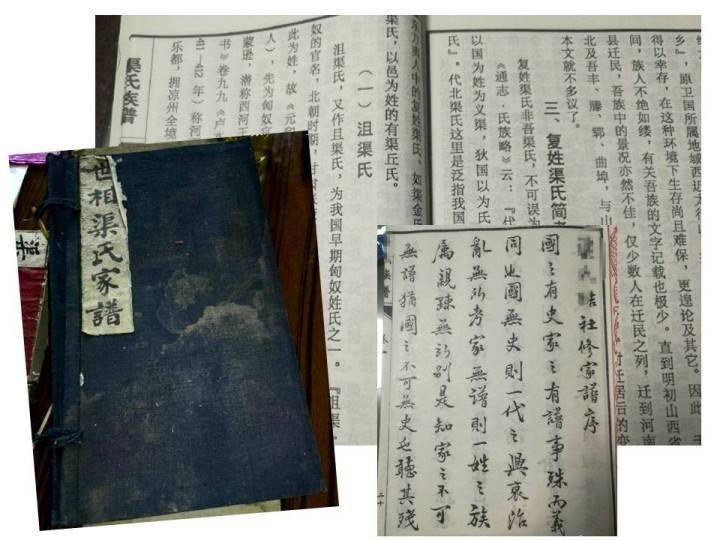 乡』，原卫国所属地域西近太行山，
得以幸存，在这种环境下生存尚且难保，更遑论及其它。因此
间，族人不绝如缕，有关吾族的文字记载也极少。直到明初山西省
县迁民，吾族中的景况亦然不佳，仅少数人在迁民之列，迁到河南
北及吾丰、滕、郓、曲埠，与山 迁居后的变
本文就不多议了。
三、复姓渠氏简
复姓渠氏非吾渠氏，不可误为
《通志·氏族略》云：『代
以国为姓为义渠，狄国以为氏
氏』。代北渠氏这里是泛指我国
夷人中的复姓渠氏。如渠金氏
渠氏，以邑为姓的有渠丘氏。
（一）沮渠氏
沮渠氏，又作且渠氏，为我国早期匈奴姓氏之一。『沮渠
奴的官名，北朝时期，
此为姓，故《元和
人），先为匈奴官
蒙逊，潜称西河王
书》卷九九《卢水
412年）称河
乐都，拥凉州全境
渠氏族谱
世相渠氏家譜
結社修家譜序
國之有史家之有譜事殊而義
同也國無史則一代之興衰治
亂無所考家無譜則一姓之族
屬親疎無所别是知家之不可
無譜猶國之不可無史也聽其殘
族譜
二十